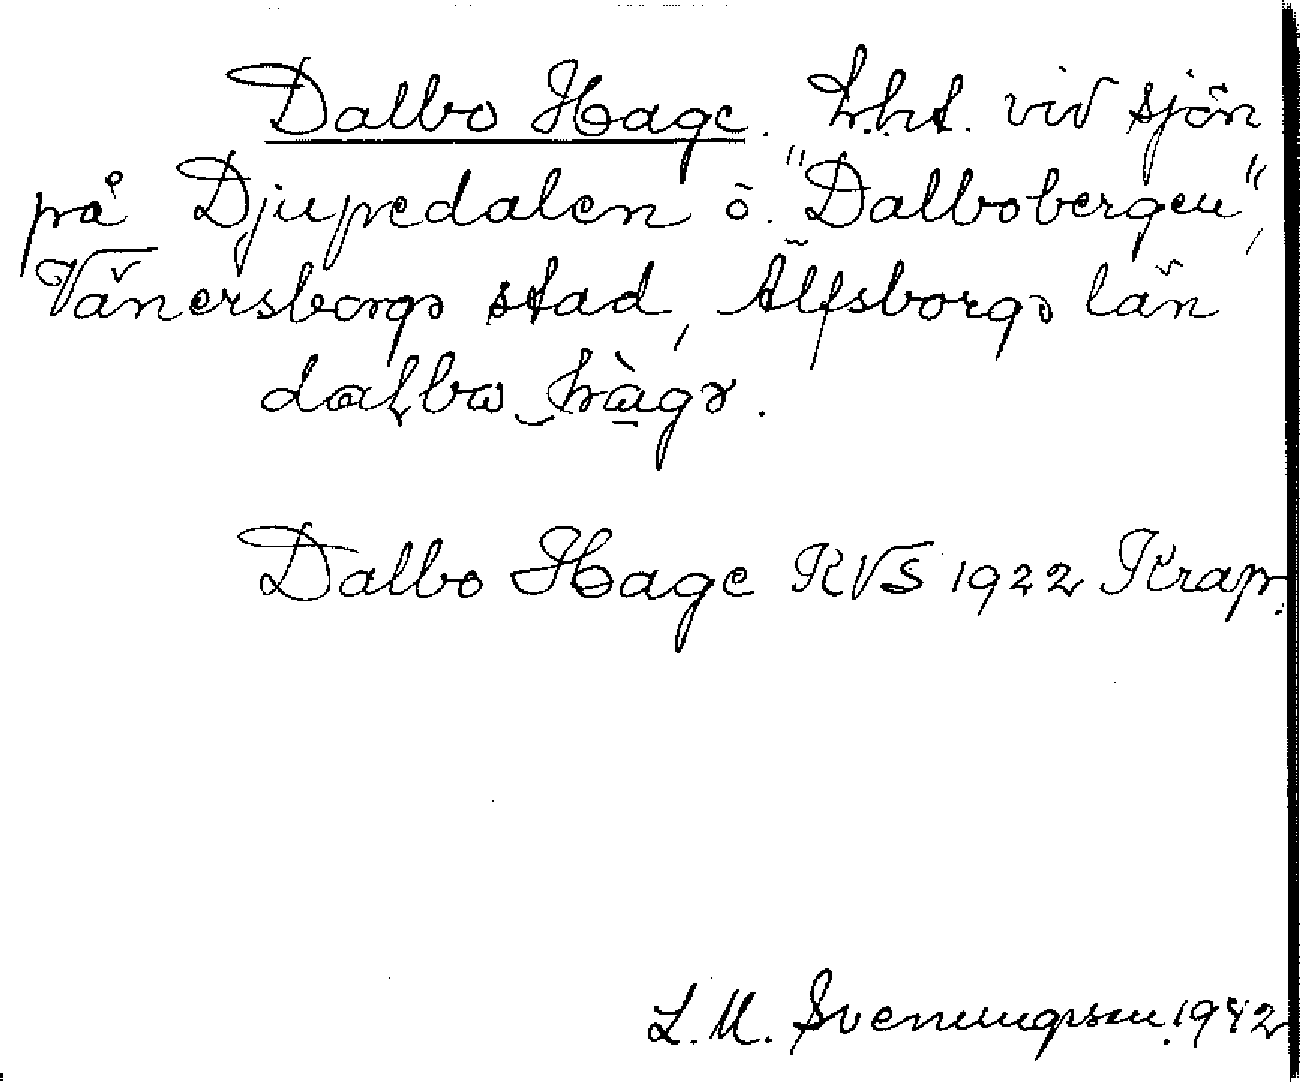 Dalbo Hage. Lht. vid sjön
på Djupedalen ö. "Dalbobergen",
Vänersborgs stad, Älfsborgs län
dalbω‿hàgə.
Dalbo Hage RVS 1922 Krap.
L. M. Svenungsson. 1942